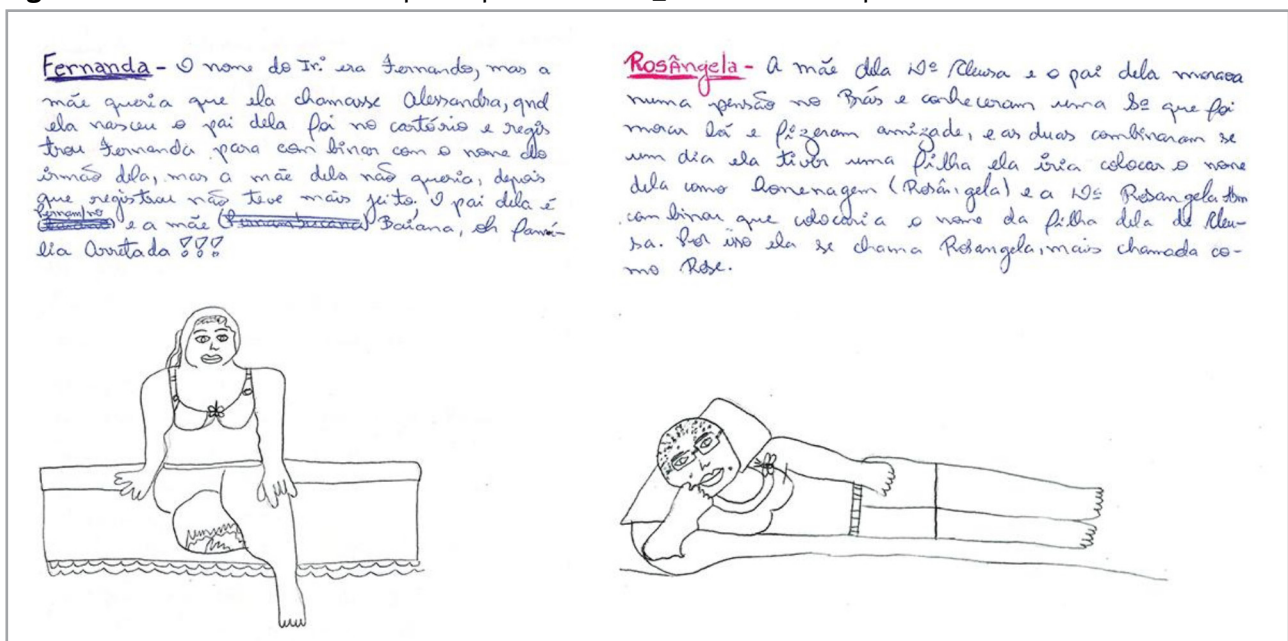 Fernanda - O nome do Ir. era Fernando, mas a
mãe queria que ela chamasse Alessandra, qnd
ela nasceu o pai dela foi no cartório e regis
trou Fernanda para conbinar com o nome do
irmão dela, mas a mãe dela não queria, depois
que registrou não teve mais jeito. O pai dela é
e a mãe Baiana, oh famí-
lia Arretada !!!
Rosângela - A mãe dela Dª Cleusa e o pai dela morava
numa pensão no Brás e conheceram uma Sª que foi
morar lá e fizeram amizade, e as duas combinaram se
um dia ela tiver uma filha ela iria colocar o nome
dela como Homenagem (Rosângela) e a Dª Rosangela tbm
combinar que colocaria o nome da filha dela de Cleu-
sa. Por isso ela se chama Rosangela, mais chamada co-
mo Rose.